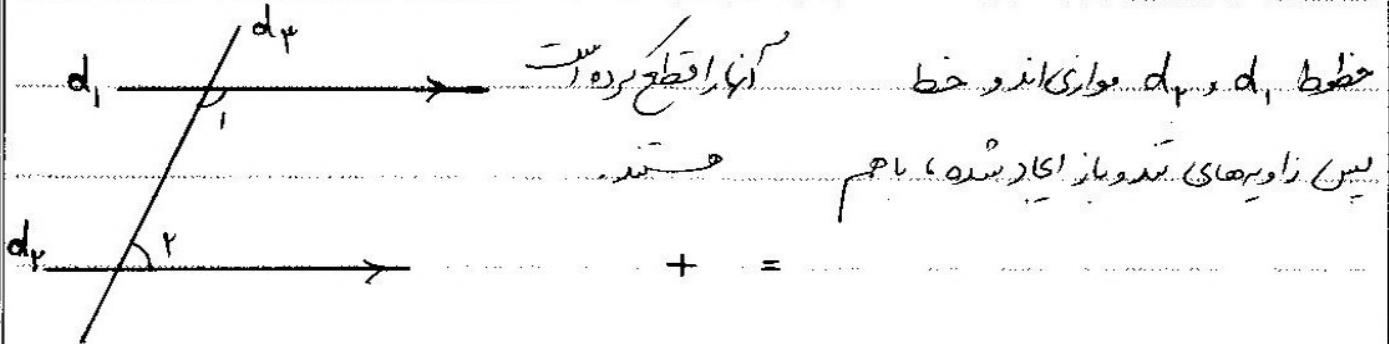 d۳
خطوط d۱ و d۲ موازی‌اند و خط       آنها را قطع کرده است
d۱
۱
پس زاویه‌های تند و باز ایجاد شده، با هم       هستند.
d۲
۲
+ =